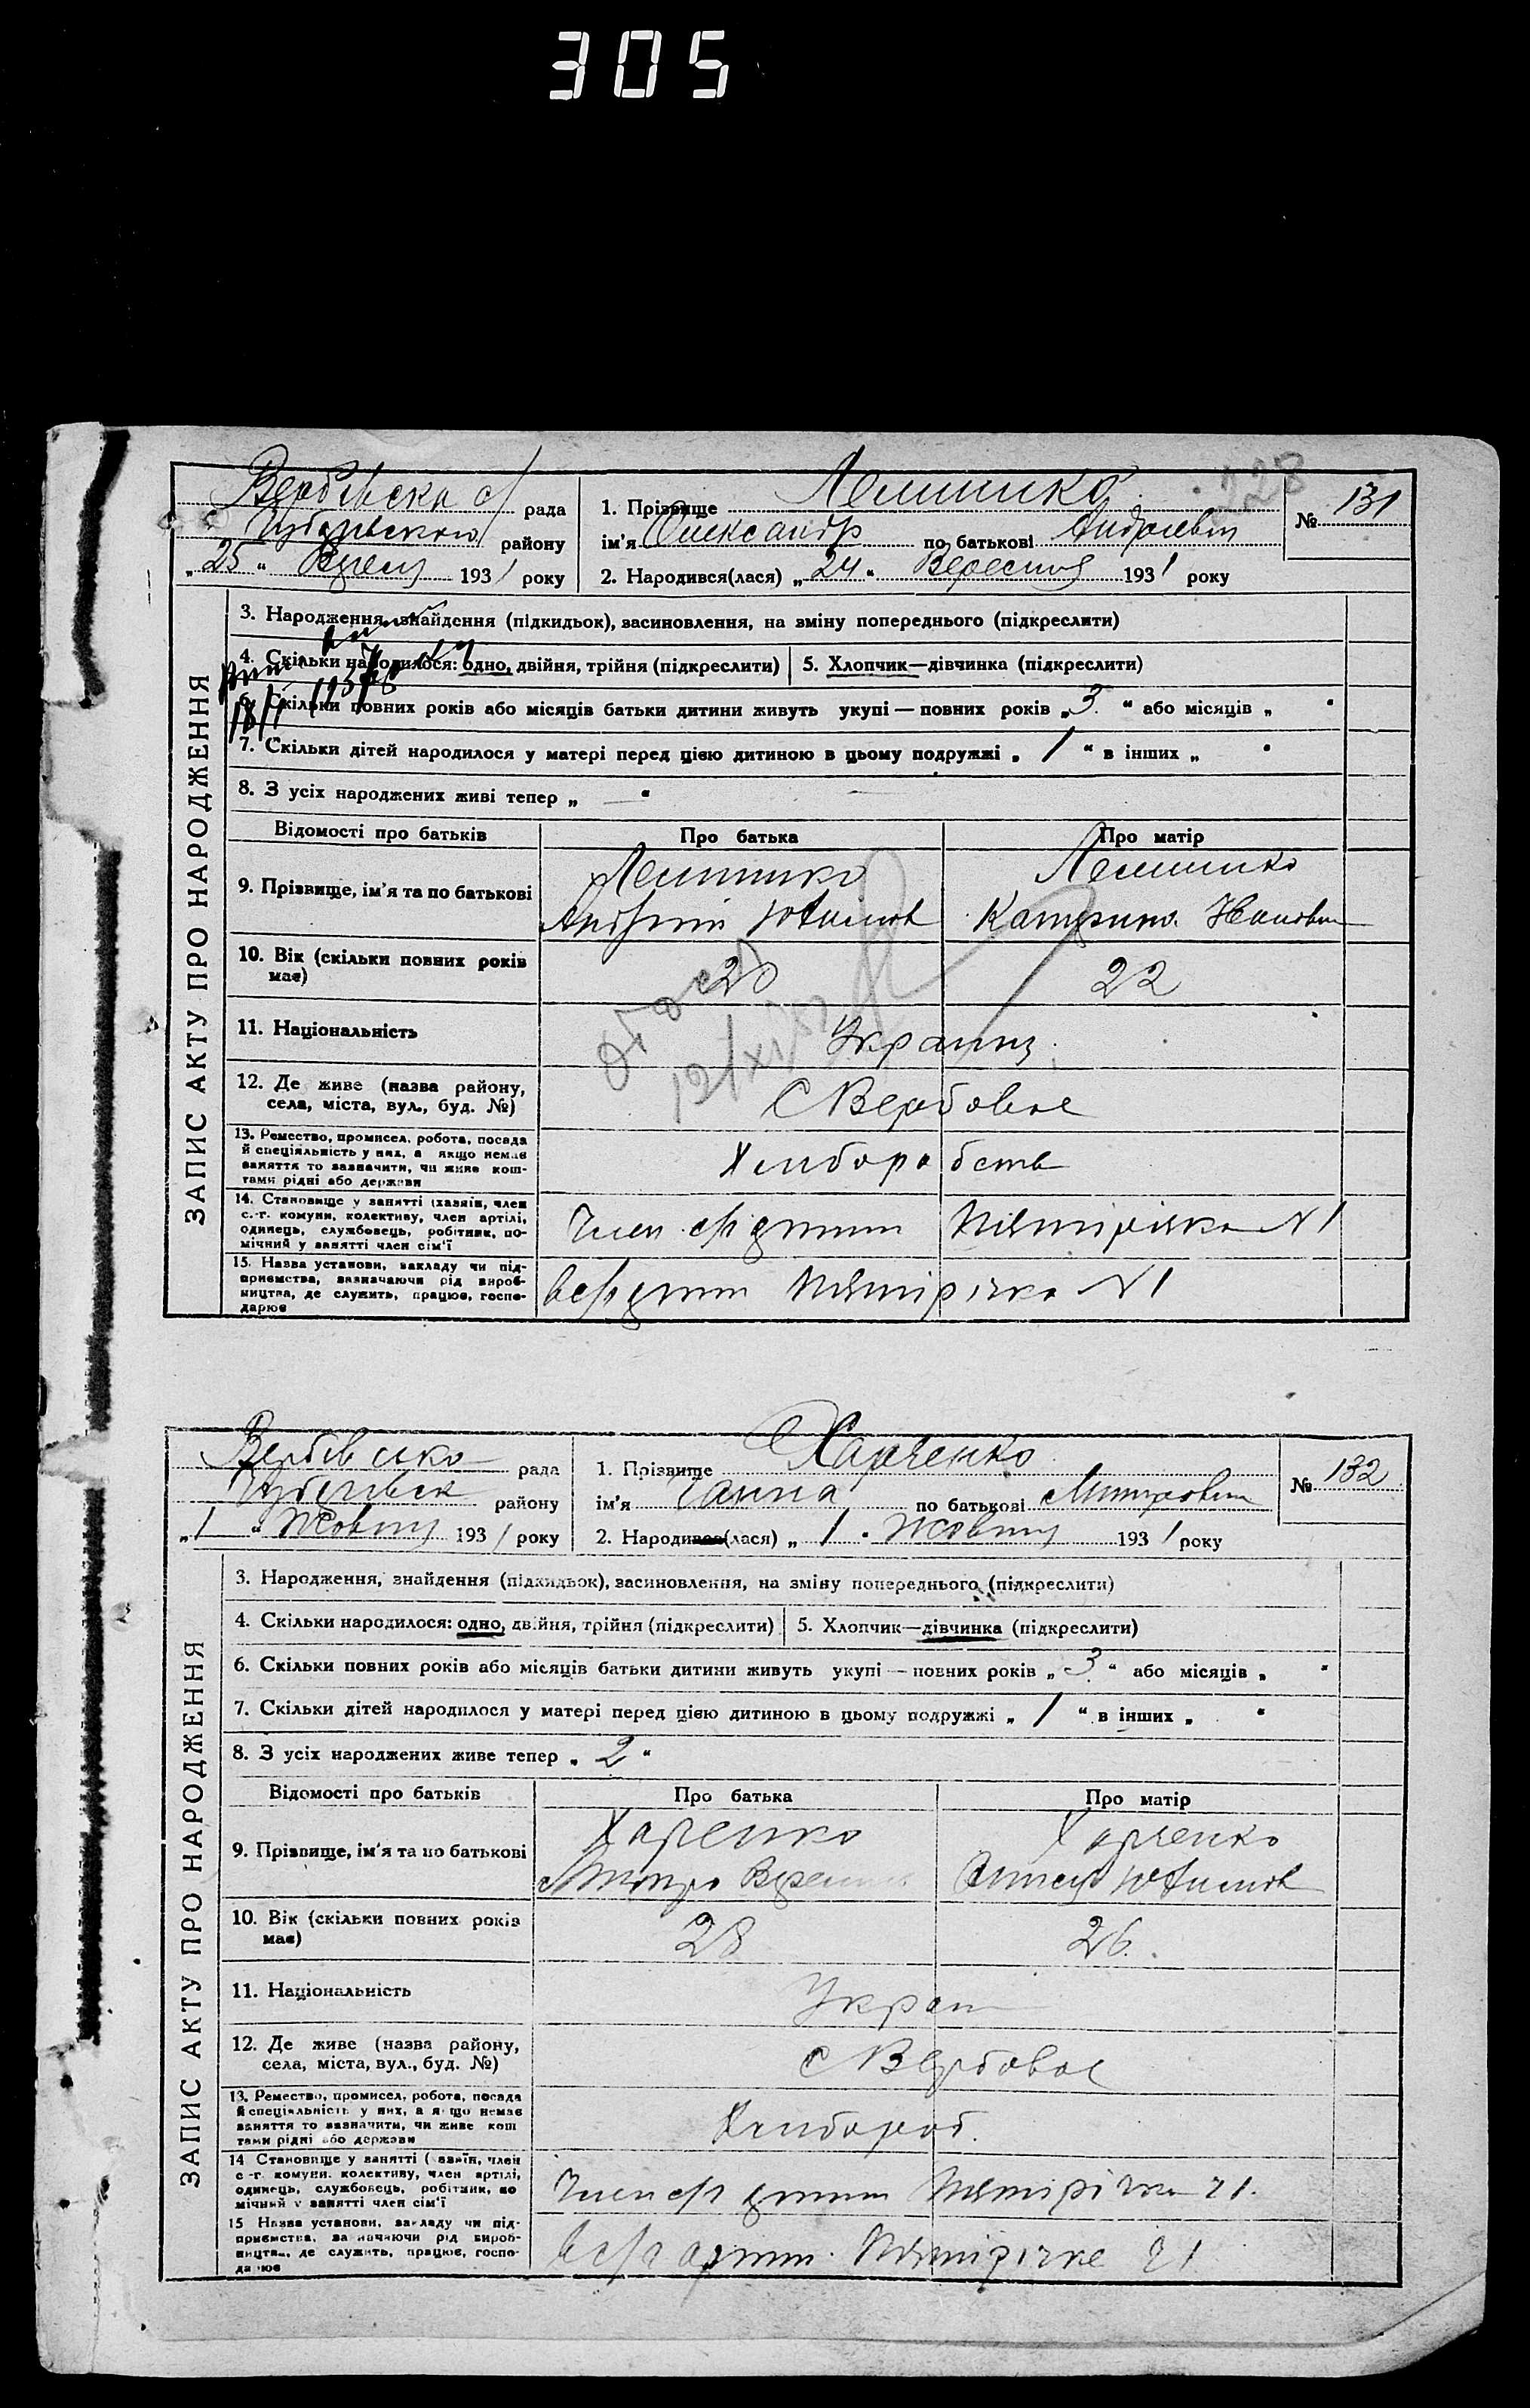 305
228
Вербівська с/ рада
району
„25“ 1931 року
1. Прізвище
ім'я Олександр по батькові Андрієвич
2. Народився(лася) „24“ Вересня 1931 року
№ 131
ЗАПИС АКТУ ПРО НАРОДЖЕННЯ
3. Народження, знайдення (підкидьок), засиновлення, на зміну попереднього (підкреслити)
4. Скільки народилося: одно, двійня, трійня (підкреслити) 5. Хлопчик—дівчинка (підкреслити)
6. Скільки повних років або місяців батьки дитини живуть укупі — повних років „3“ або місяців „ “
7. Скільки дітей народилося у матері перед цією дитиною в цьому подружжі „1“ в інших „ “
8. З усіх народжених живі тепер „ — “
Відомості про батьків Про батька Про матір
9. Прізвище, ім'я та по батькові
Андрій Катерина
10. Вік (скільки повних років має) 20 22
11. Національність
12. Де живе (назва району, села, міста, вул., буд. №) С Вербовое
13. Ремество, промисел, робота, посада
й спеціяльність у них, а якщо немає
заняття то зазначити, чи живе кош-
тами рідні або держави
14. Становище у занятті (хазяїн, член
с.-г. комуни, колективу, член артілі,
одинець, службовець, робітник, по-
мічний у занятті член сім'ї
Член с/г артіли Пятирічка N 1
15. Назва установи, закладу чи під-
приємства, зазначаючи рід вироб-
ництва, де служить, працює, госпо-
дарює
в с/г артіли Пятирічка N 1
Вербівсько рада
району
„1“ Жовтня 1931 року
1. Прізвище Харченко
ім'я Ганна по батькові Митровна
2. Народився(лася) „1“ Жовтня 1931 року
№ 132
ЗАПИС АКТУ ПРО НАРОДЖЕННЯ
3. Народження, знайдення (підкидьок), засиновлення, на зміну попереднього (підкреслити)
4. Скільки народилося: одно, двійня, трійня (підкреслити) 5. Хлопчик—дівчинка (підкреслити)
6. Скільки повних років або місяців батьки дитини живуть укупі — повних років „3“ або місяців „ “
7. Скільки дітей народилося у матері перед цією дитиною в цьому подружжі „1“ в інших „ “
8. З усіх народжених живе тепер „2“
Відомості про батьків Про батька Про матір
9. Прізвище, ім'я та по батькові Харченко Харченко
10. Вік (скільки повних років має) 28 26
11. Національність
12. Де живе (назва району, села, міста, вул., буд. №) с Вербовое
13. Ремество, промисел, робота, посада
й спеціяльність у них, а якщо немає
заняття то зазначити, чи живе кош
тами рідні або держави
Хлибороб
14 Становище у занятті (хазяїн, член
с-г. комуни, колективу, член артілі,
одинець, службовець, робітник, по
мічний у занятті член сім'ї
Член с/г артіли Пятирічка
15 Назва установи, закладу чи під-
приємства, зазначаючи рід вироб-
ництва, де служить, працює, госпо-
дарює
в с/г артіли Пятирічка